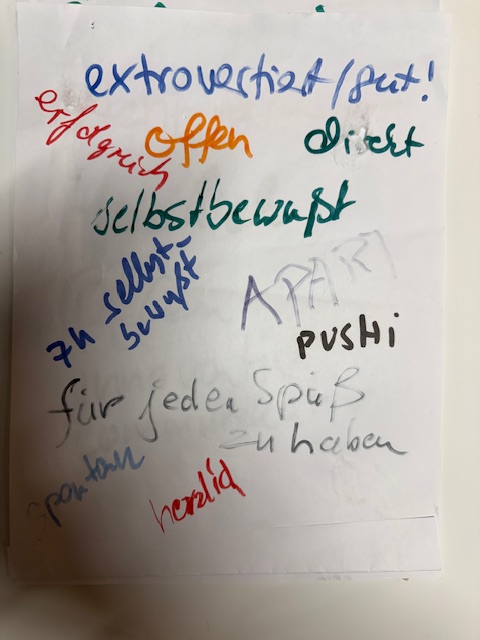 extrovertiert/gut!
erfolgreich
offen
direkt
selbstbewußt
zu selbst-
bewußt
APART
PUSHi
für jeden Spaß
zu haben
spontan
herzlich